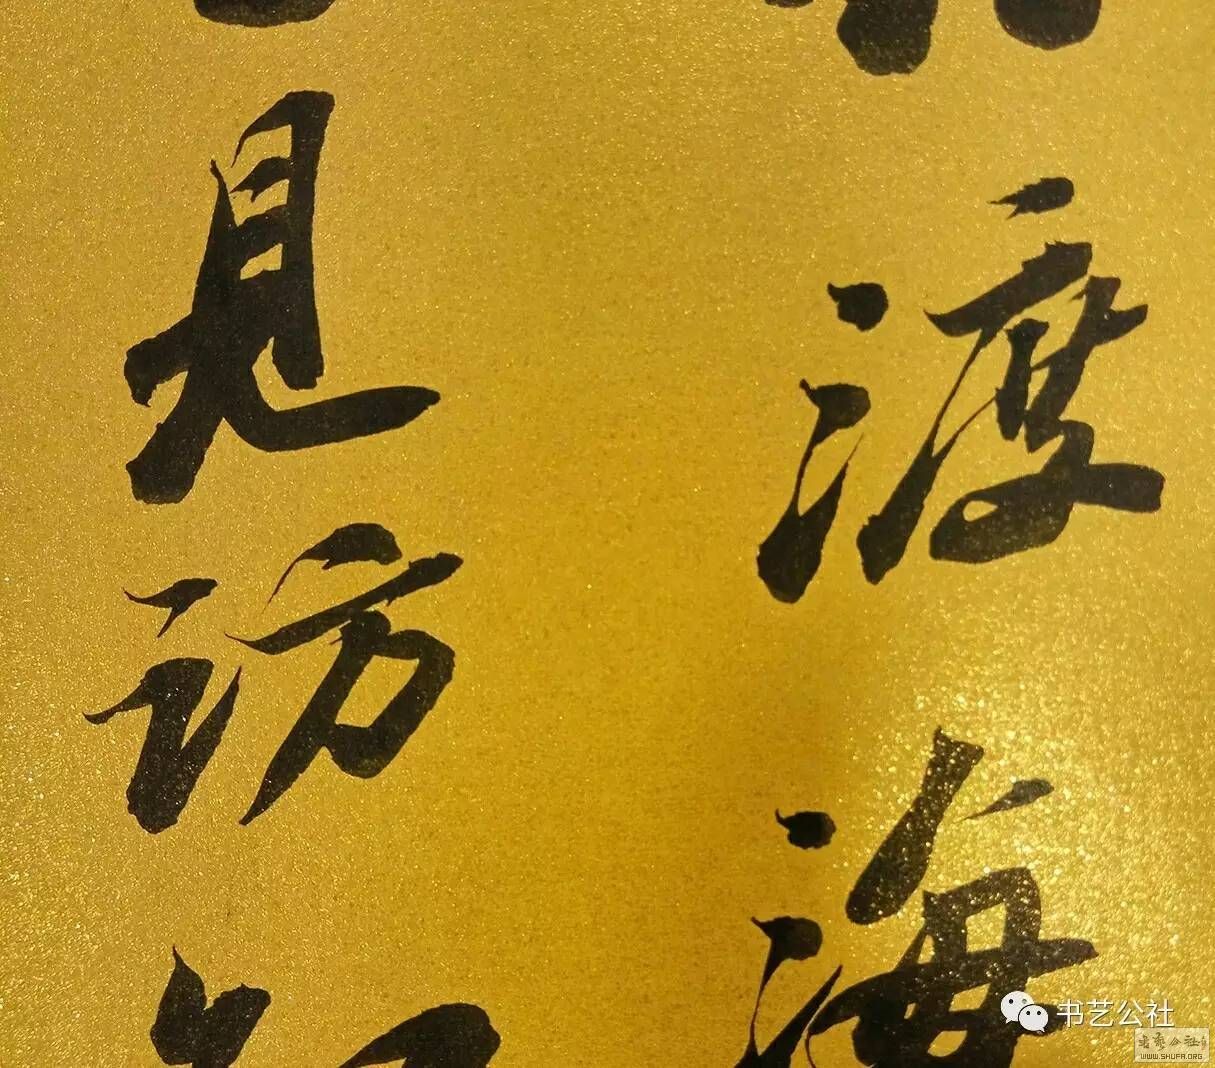 渡海
見訪
书艺公社
书艺公社
WWW.SHUFA.ORG